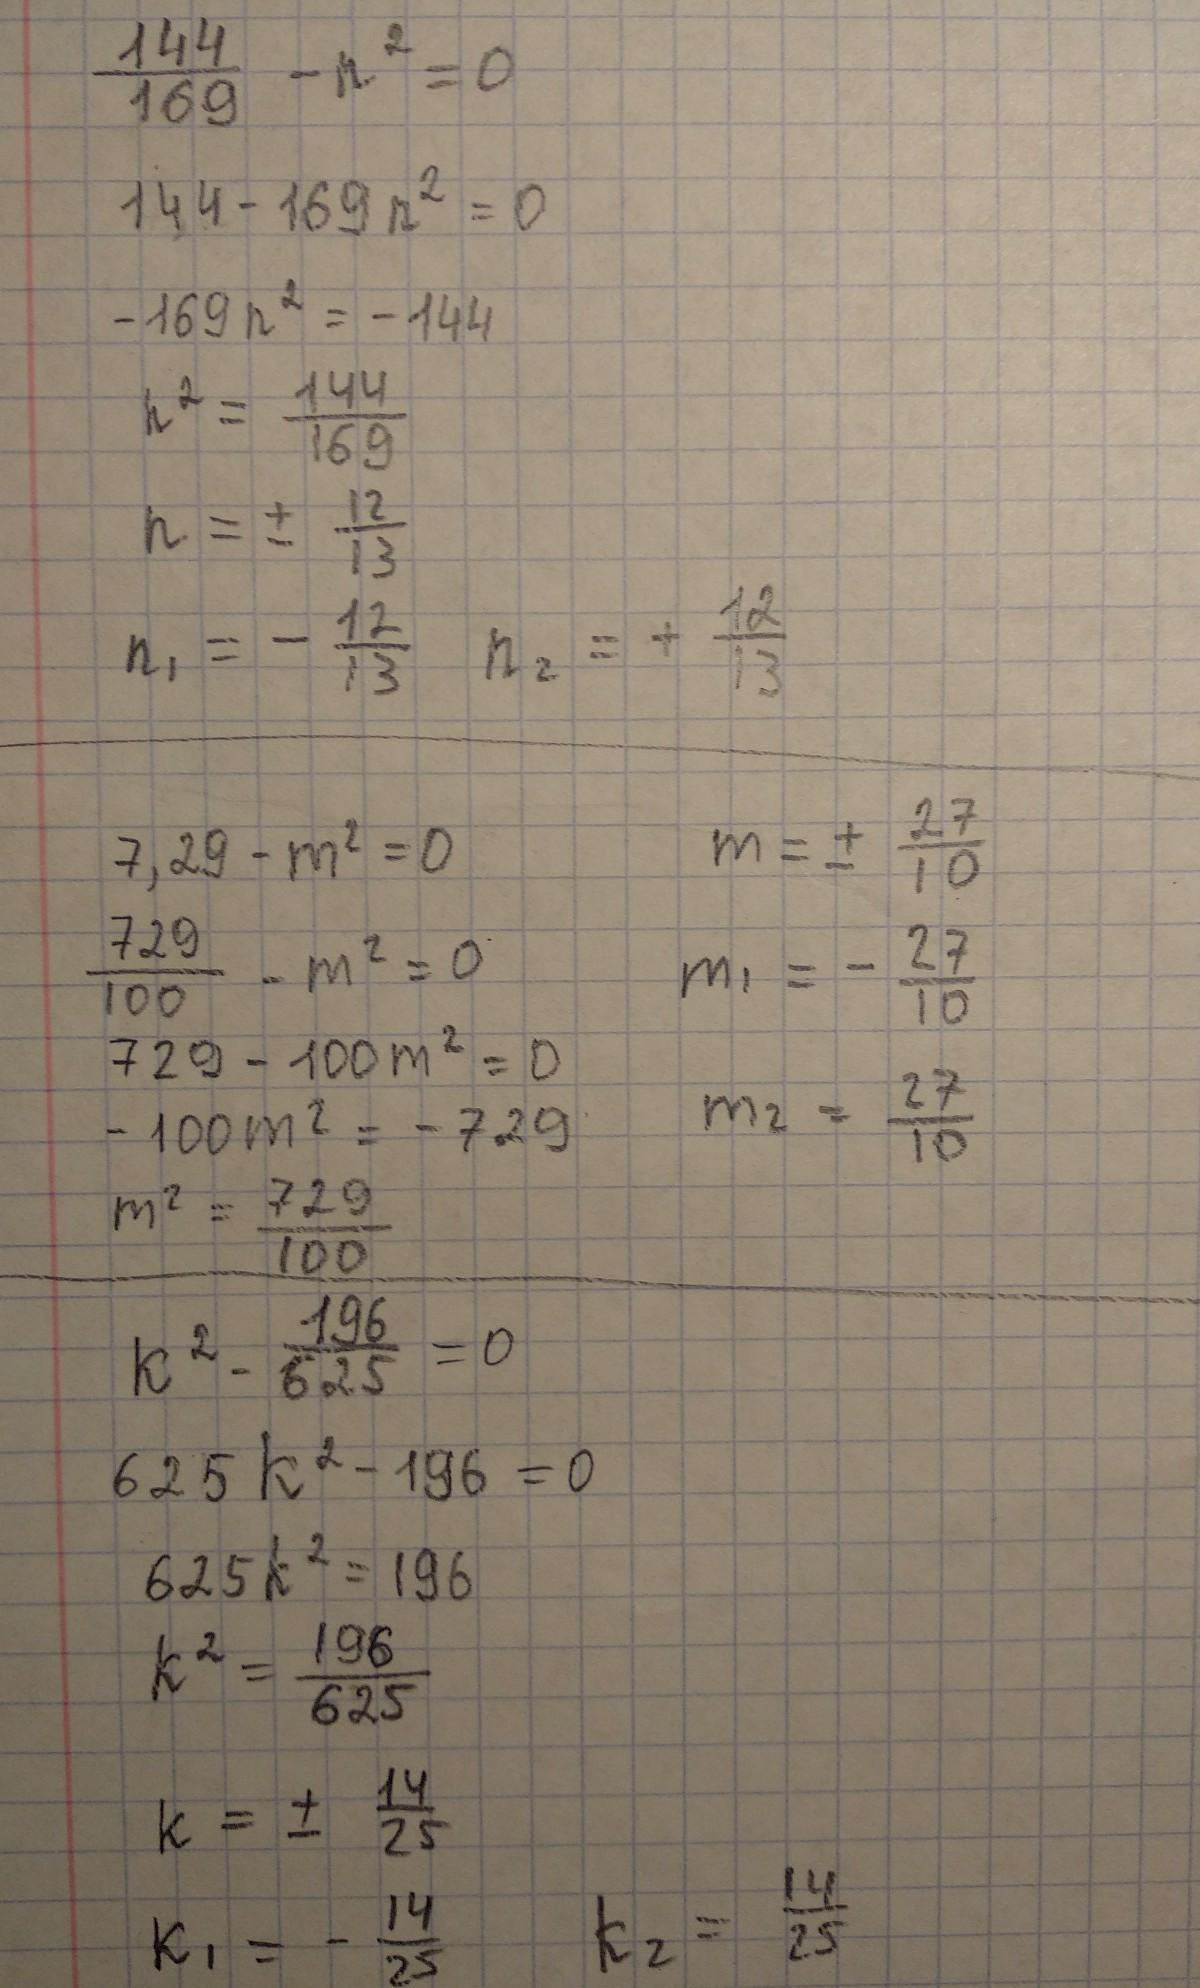 144/169 - n² = 0
144 - 169n² = 0
-169n² = -144
n² = 144/169
n = ± 12/13
n₁ = - 12/13 n₂ = + 12/13
7,29 - m² = 0
729/100 - m² = 0
729 - 100m² = 0
-100m² = -729
m² = 729/100
m = ± 27/10
m₁ = - 27/10
m₂ = 27/10
k² - 196/625 = 0
625k² - 196 = 0
625k² = 196
k² = 196/625
k = ± 14/25
k₁ = - 14/25 k₂ = 14/25